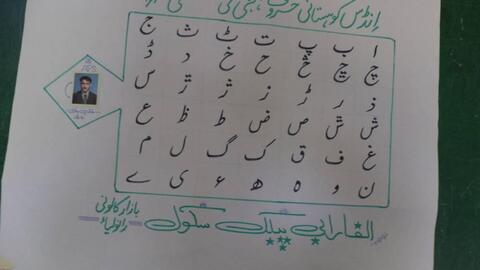 انڈس کوہستانی حروف تہجی کی
ا ب پ ت ٹ ث ج
چ ڇ څ ح خ د ڈ
ذ ر ڑ ز ژ ڙ س
ش ݜ ص ض ط ظ ع
غ ف ق ک گ ل م
ن و ہ ھ ء ی ے
الفارابی پبلک سکول
بازار کالونی
رانولیا